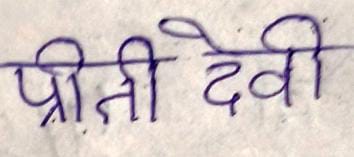 प्रीती देवी